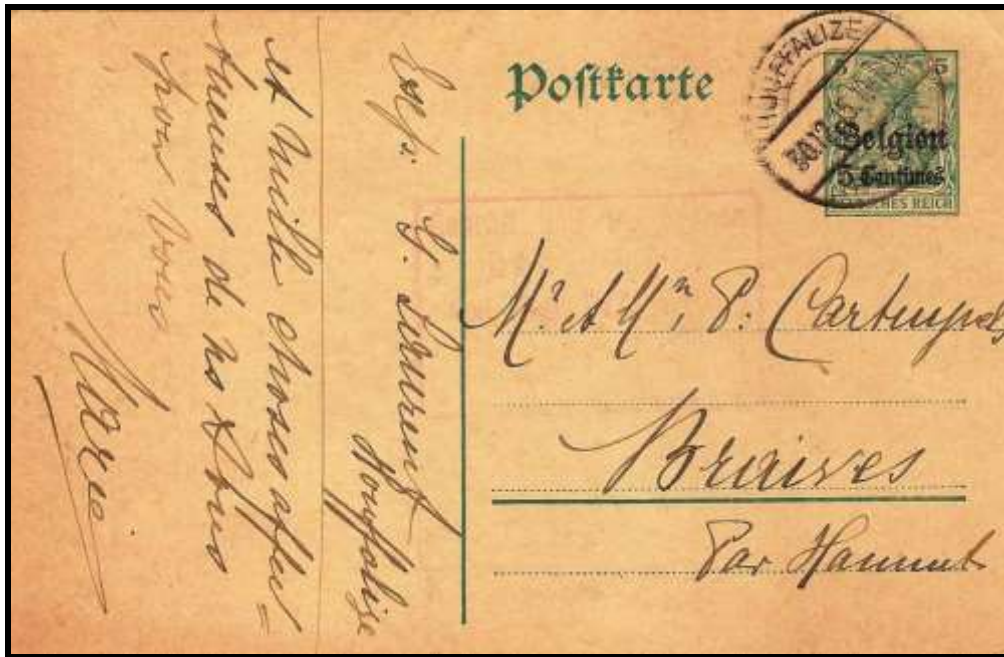 Postkarte
HOUFFALIZE
30.12
5 5
Belgien
5 Centimes
DEUTSCHES REICH
Mr et Mme P: Cartuyvels
Braives
Par Hannut
Exp: G. Laurent
Houffalize
et mille choses affec=
tueuses de nos tous
pour vous
Marie